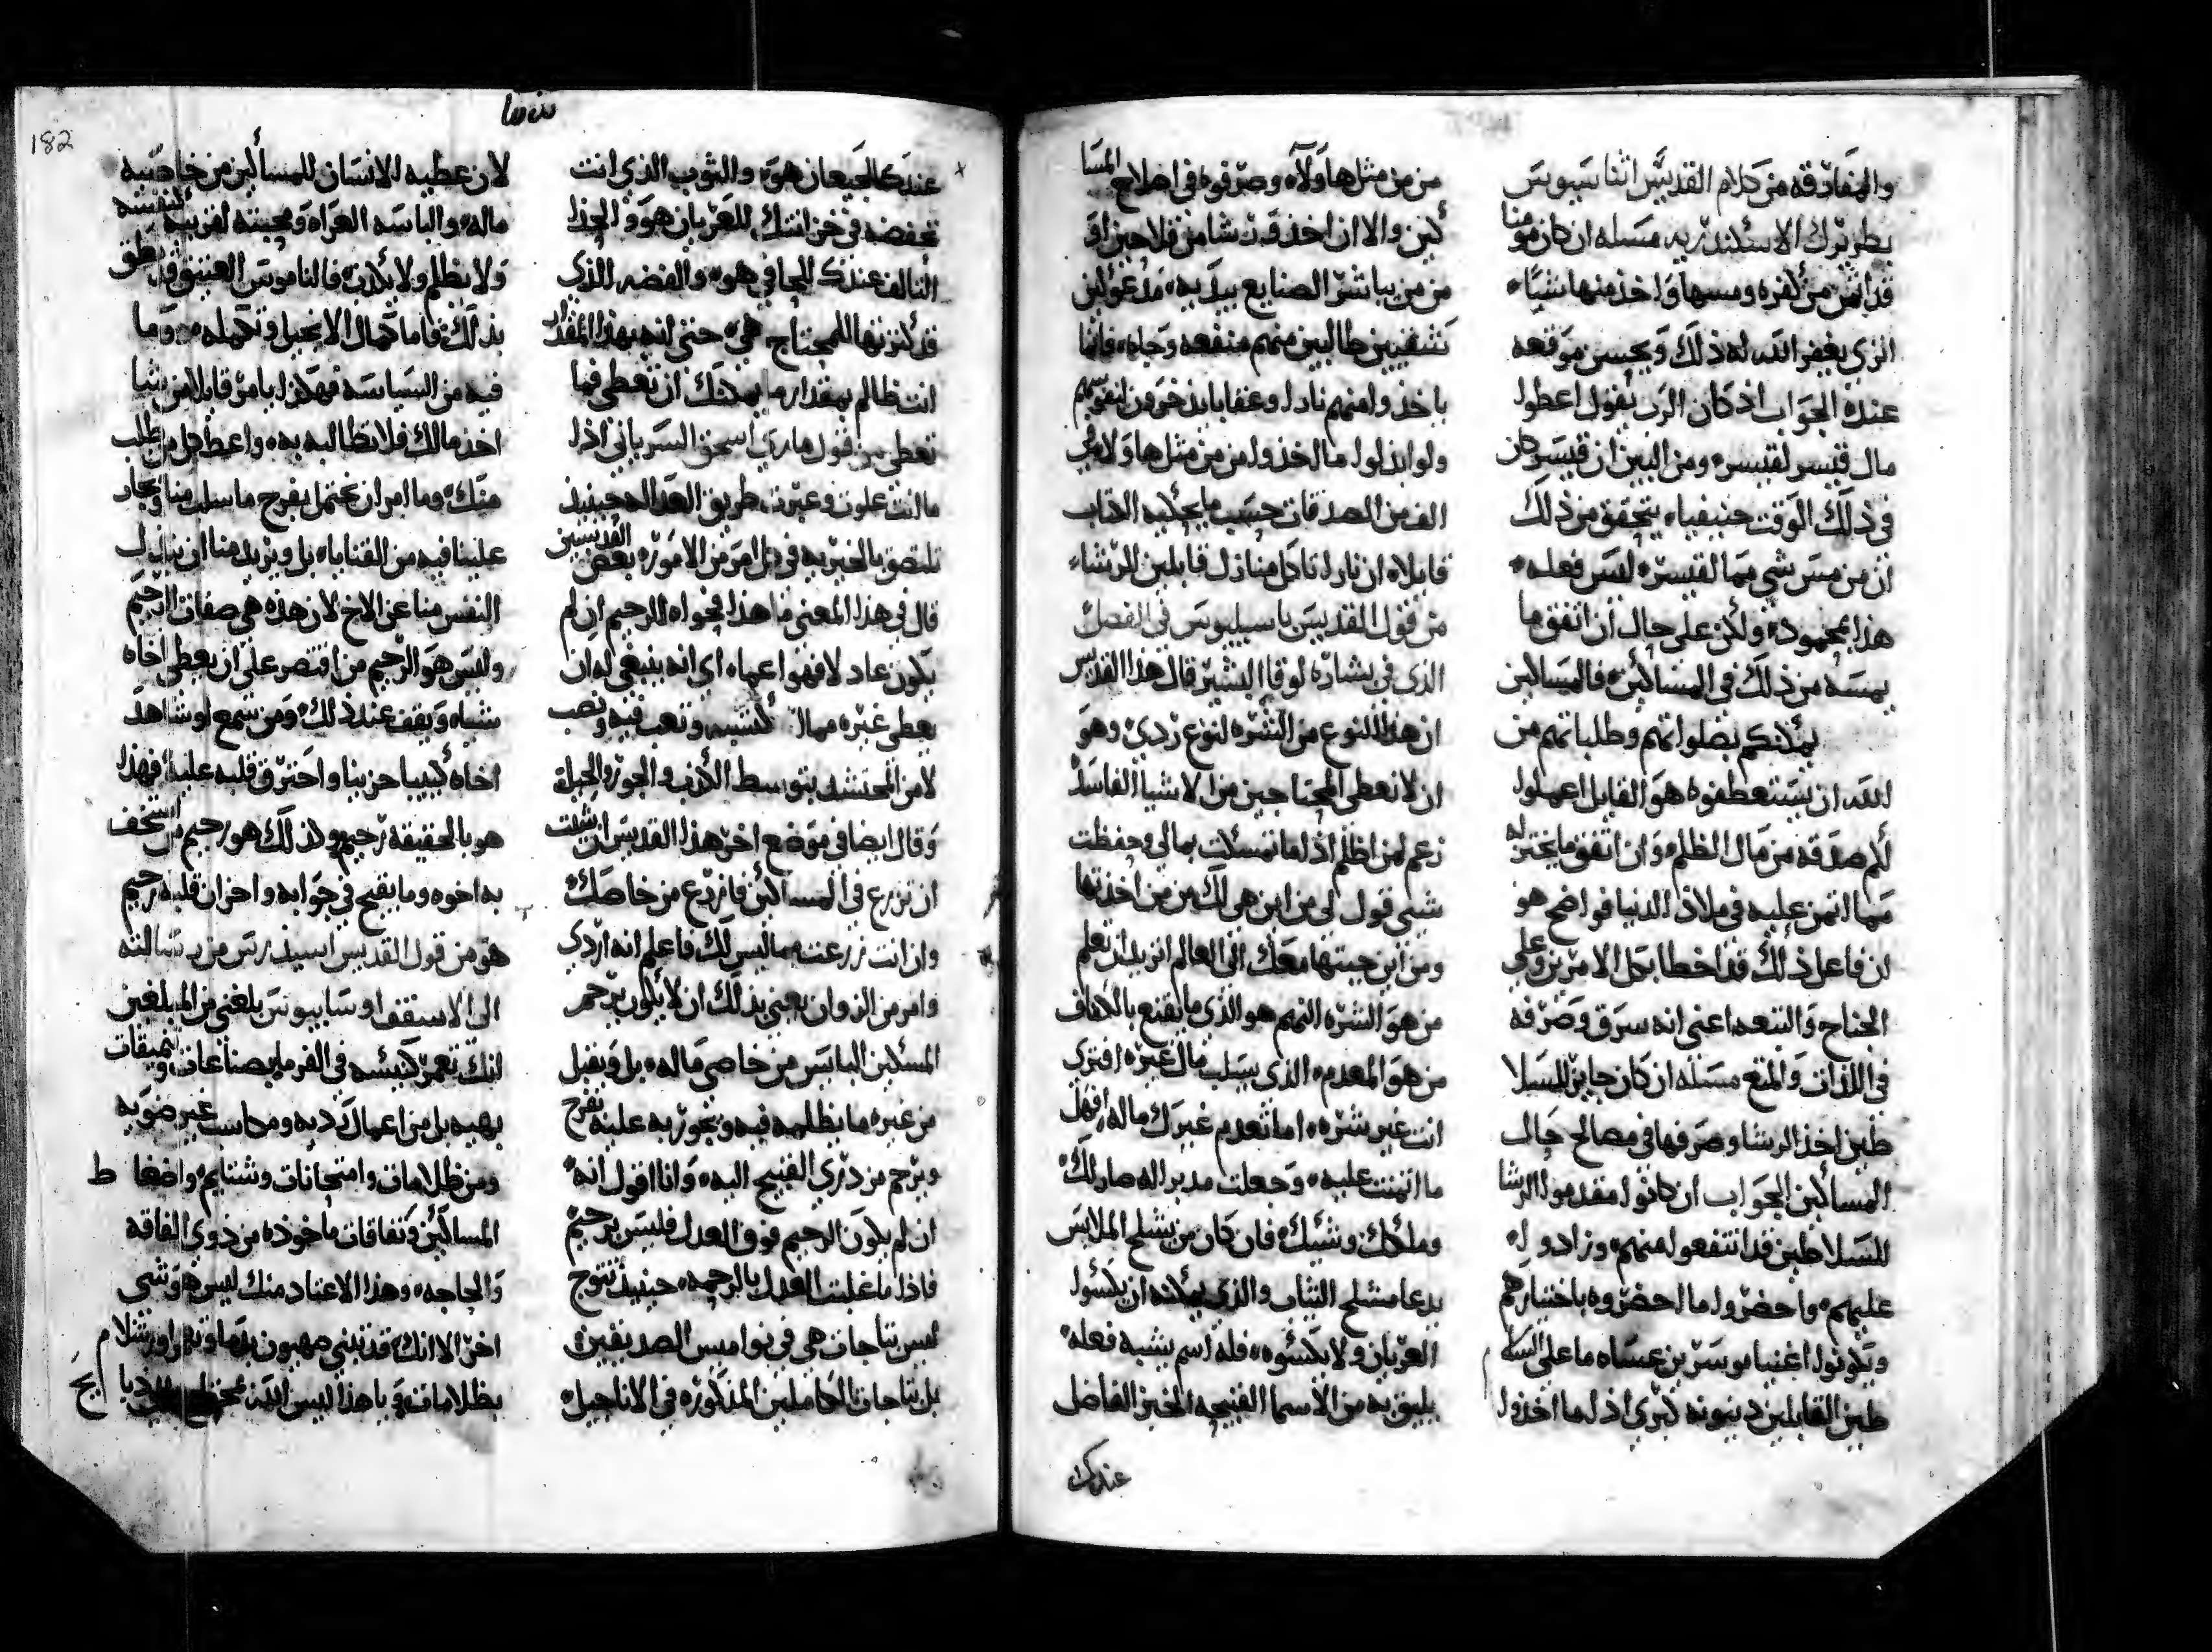 والمفارقه من كلام القديس اثناسيوس
بطريرك الاسكندريه مسله ان كان مومنا
قد اثمن من لقره ومسها واخذ منها شياء
انرى يغفر الله له ذلك ويحسن موقعه
عنده الجواب اذ كان الرب يقول اعطوا
مال قيسر لقيسر ومن البين ان قيسر كان
في ذلك الوقت حنيفياء يتحقق من ذلك
ان من مسر شي مما لقيسر ليس فعله
هذا بمحموده ولكن على حال ان اتفق ما
يمسه من ذلك في المساكين فالمساكين
يمكنهم بصلواتهم وطلباتهم من
الله ان يستعطفوه هو القايل اعملوا
لكم صدقه من مال الظلم وان اتفق ما يختزله
مما اتمن عليه في ملاذ الدنيا فواضح هو
ان فاعل ذلك قد اخطا بكل الامرين وعلى
الجناح والتبعه اعنى انه سرق وصرفه
في اللذات والمتع مسله ان كان جايز للسلا
طين اخذ الرشا وصرفها في مصالح حال
المساكين الجواب ان كانوا مقدموا الرشا
للسلاطين قد انتفعوا منهم وزادوا له
عليهم واحضروا ما احضروه باختيارهم
ويكونوا اغنيا موسرين عساه ما على السلا
طين القابلين دينونه كبرى اذا ما اخذوا
من من مثل هاولاء وصرفوه في اصلاح المسا
كين والا ان اخذوا رشا من فلاحين او
من من يباشر الصنايع بيديه مدعولين
شقيين طالبين منهم منفعه وجاه فانما
ياخذوا منهم نارا وعقابا يدخرون لنفوسهم
ولو ابدلوا ما اخذوا من من مثل هاولاء في
الف من الصدقات حسب ما يحكيه الكتاب
قايلاه ان نارا تاكل منازل قابلين الرشاء
من قول القديس باسيليوس في الفصل
الذي في بشارة لوقا البشير قال هذا القديس
ان هذا النوع من الشره لنوع ردى وهو
ان لا نعطى المحتاجين من الاشيا الفاسد
زعم لمن اظلم اذا ما تمسكت بمالي وحفظت
شيى قول لي من اين هي لك من من اخذتها
ومن اين جيتها معك الى العالم اتريد ان تعلم
من هو الشره النهم هو الذي ما يقنع بالكفاف
من هو المعدم الذي يسلب مال غيره افترى
انت غير شره اما تعدم غيرك ماله افهل
ما اتمنت عليه وجعلت مدبرا له صار لك
وملكك وشيك فان كان من يشلح الملابس
يدعا مشلح الثياب والذي يمكنه ان يكسوا
العريان ولا يكسوه فله اسم يشبه فعله
يليق به من الاسما القبيحه الخبز الفاضل
عندك
سدسا
182
عندك للجيعان هو والثوب الذي انت
تحفضه في خزانتك للعريان هو والحذا
التالف عندك للحافي هو والفضه الذي
قد كنزتها للمحتاج هي حتى انه بهذا المقدار
انت ظالم بمقدار ما يمكنك ان تعطى فما
تعطي من قول ماري اسحق السرياني اذا
ما انت علوت وعبرت طريق العداله حينيذ
تلتصق بالحريه في كل امر من الامور بعض القديسين
قال في هذا المعنى ما هذا فحواه الرحيم ان لم
يكون عادلا فهوا عماه اي انه ينبغي له ان
يعطي غيره مما اكتسبه وتعب فيه ونصب
لا من المحتشد بتوسط الكذب والجور والحيله
وقال ايضا في موضع اخر هذا القديس ان شيت
ان تزرع في المساكين فازرع من خاصك
وان انت زرعت مما ليس لك فاعلم انه اردى
وامر من الزوان يعنى بذلك ان لا يكون يرحم
المسكين البايس من خاصي ماله بل ويقبل
من غيره ما يظلمه فيه ويجور به عليه يفرح
ويرحم من دري القبيح اليه وانا اقول انه
ان لم يكون الرحيم فوق العدل فليس برحيم
فاذا ما غلبت العدل بالرحمه حينيذ تتوج
ليس بتاجات هي في نواميس الصديقين
بل بتاجات الكاملين المذكوره في الاناجيل
لان عطيه الانسان للمساكين من خاصته
ماله والباسه العراه ومحبته لقريبه كنفسه
ولا يظلم ولا يكذب فالناموس العتيق قد نطق
بذلك فاما كمال الانجيل وتكمله وما
فيه من السياسه فهكذا يامر قايلا من يشا
اخذ مالك فلا تطالبه به واعط كل من طلب
منك وما امر ان نحتمل بفرح ما سلب منا وبحار
علينا فيه من القنايا بل ويريد منا ان نبذل
النفس منا عن الاخ لان هذه هي صفات الرحيم
وليس هو الرحيم من اقتصر على ان يعطى اخاه
شياء ويقف عند ذلك ومن سمع او شاهد
اخاه كييبا حزينا واحترق قلبه عليه فهذا
هو بالحقيقه رحيم وكذلك هو رحيم من استخف
به اخوه وما يقبح في جوابه واحزان قلبه رحيم
هو من قول القديس ايسيذرس من رسالته
الى الاسقف اوسابيوس بلغني من المبلغين
انك تعمر كنيسه في الفرما بصناعات وتنميقات
بهيه بل من اعمال رديه ومكاسب غير ضويه
ومن ظلامات وامتحانات وشتايم واضغا ط
المساكين ونفاقات ماخوذه من ذوي الفاقه
والحاجه وهذا الاعتاد منك ليس هو شي
اخر الا انك قد تبني صهيون بدما وتعمر اورشلام
بظلامات ويا هذا ليس الله